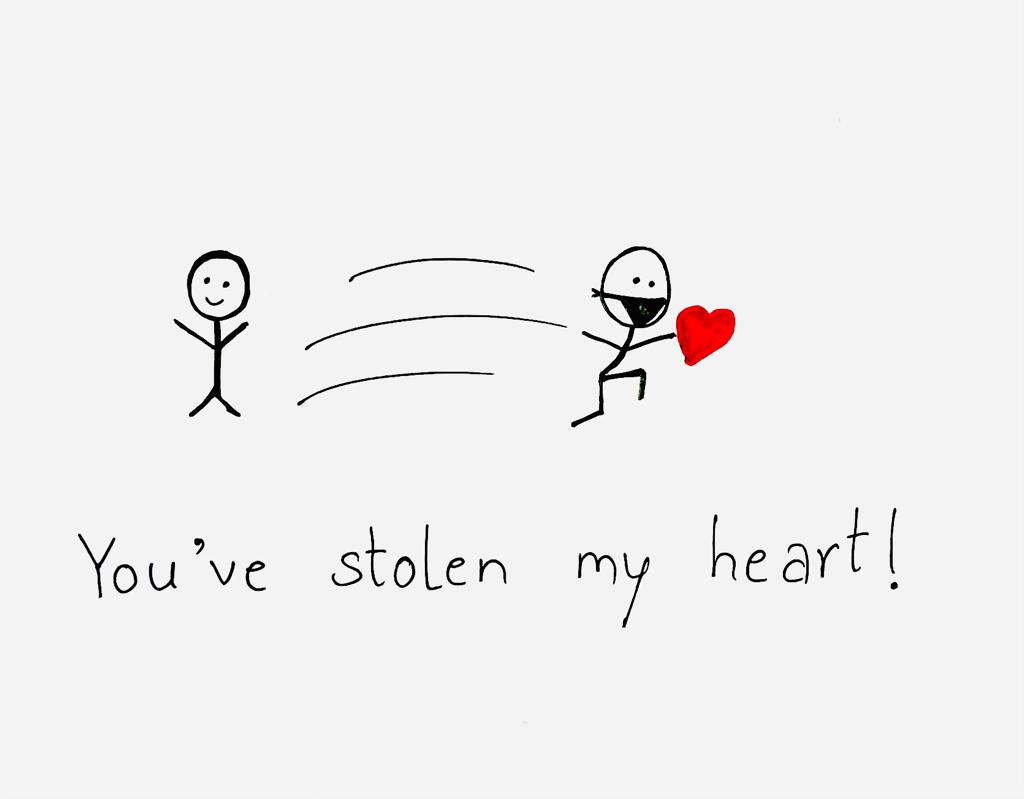 You've stolen my heart!